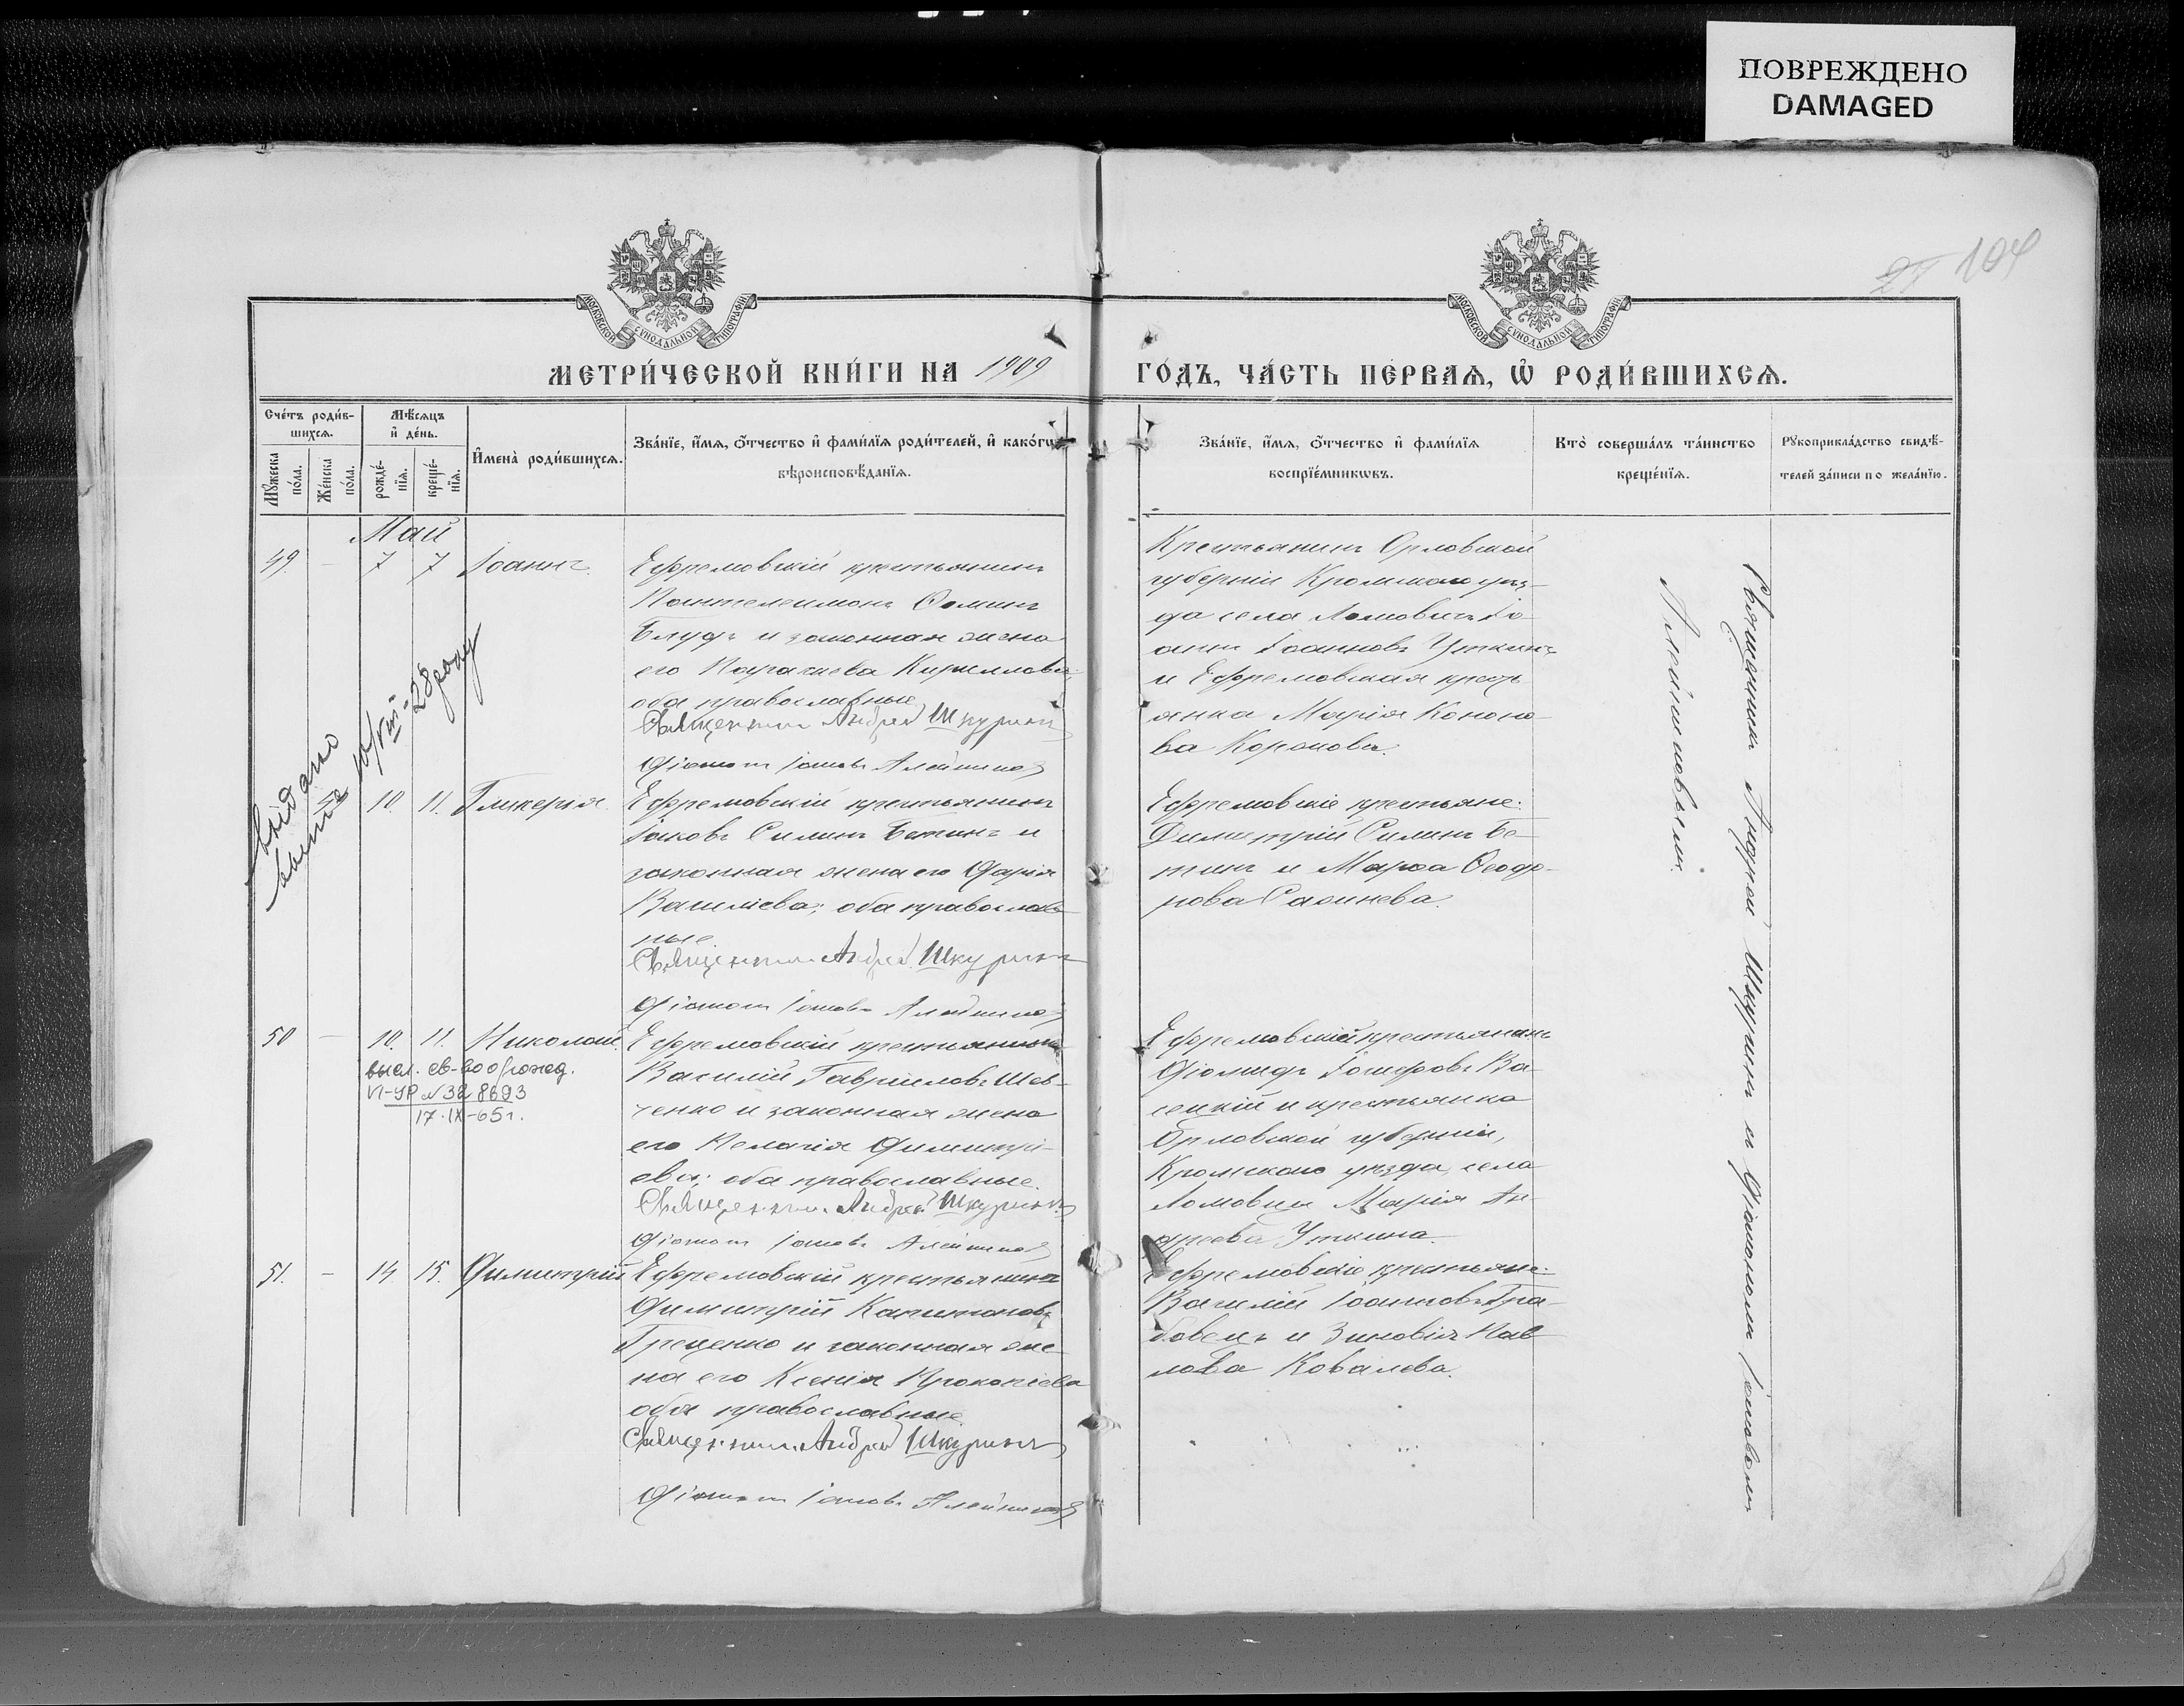 ПОВРЕЖДЕНО
DAMAGED
104
МОСКОВСКОЙ СѴНОДАЛЬНОЙ ТИПОГРАФІИ
МОСКОВСКОЙ СѴНОДАЛЬНОЙ ТИПОГРАФІИ
МЕТРИ́ЧЕСКОЙ КНИ́ГИ НА 1909
ГО́ДЪ, ЧА́СТЬ ПЕ́РВАѦ, Ѡ҆ РОДИ́ВШИХСѦ.
Сче́тъ роди́в-
шихсѧ.
Мꙋ́жеска по́ла.
Же́нска по́ла.
Мѣ́сѧцъ
и҆ де́нь.
рожде́-
нїѧ.
креще́-
нїѧ.
И҆мена̀ роди́вшихсѧ.
Зва́нїе, и҆́мѧ, ѻ҆́тчество и҆ фами́лїѧ роди́телей, и҆ како́гѡ
вѣроисповѣ́данїѧ.
Зва́нїе, и҆́мѧ, ѻ҆́тчество и҆ фами́лїѧ
воспрїе́мникѡвъ.
Кто̀ соверша́лъ та́инство
креще́нїѧ.
Рꙋкоприкла́дство свидѣ́-
телей за́писи по жела́нїю.
Май
49. – 7 7 Іоаннъ.
Ефремовскій крестьянинъ
Пантелеимонъ Ѳоминъ
Блудъ и законная жена
его Параскева Кириллова;
оба православные.
Священникъ Андрей Шкуринъ
Діаконъ Іаковъ Алейников
Крестьянинъ Орловской
губерніи Кромскаго уѣз-
да села Ломовичъ Іо-
аннъ Іоанновъ Уткинъ
и Ефремовская крест
янка Марія Конно-
ва
видано
10/VIII-28 року
10. 11. Гликерія.
Ефремовскій крестьянинъ
Іаковъ Силинъ Бетинъ и
законная жена его Дарія
Василіева; оба православ-
ные.
Священникъ Андрей Шкуринъ
Діаконъ Іаковъ Алейников
Ефремовскіе крестьяне:
Димитрій Силинъ Бе-
тинъ и Марѳа Ѳеодо-
рова
50 – 10. 11. Николай.
высл. св-во о рожд.
VI-УР №328693
17.IX-65г.
Ефремовскій крестьянинъ
Василій Гавріиловъ Шев-
ченко и законная жена
его Пелагія Димитрі-
ева; оба православные.
Священникъ Андрей Шкуринъ
Діаконъ Іаковъ Алейников
Ефремовскій крестьянинъ
Діомидъ Іосифовъ Ва-
сецкій и крестьянка
Орловской губерніи,
Кромскаго уѣзда, села
Ломовца Марія Ан-
дреева Уткина.
51. – 14. 15. Димитрій
Ефремовскій крестьянинъ
Димитрій Капитоновъ
Греценко и законная же-
на его Ксенія Прокопіева
оба православные.
Священникъ Андрей Шкуринъ
Діаконъ Іаковъ Алейников
Ефремовскіе крестьяне:
Василій Іоанновъ Гра-
бовецъ и Зиновія Пав-
лова Ковалева.
Священникъ Андрей Шкуринъ съ Діакономъ Іаковомъ
Алейниковымъ.